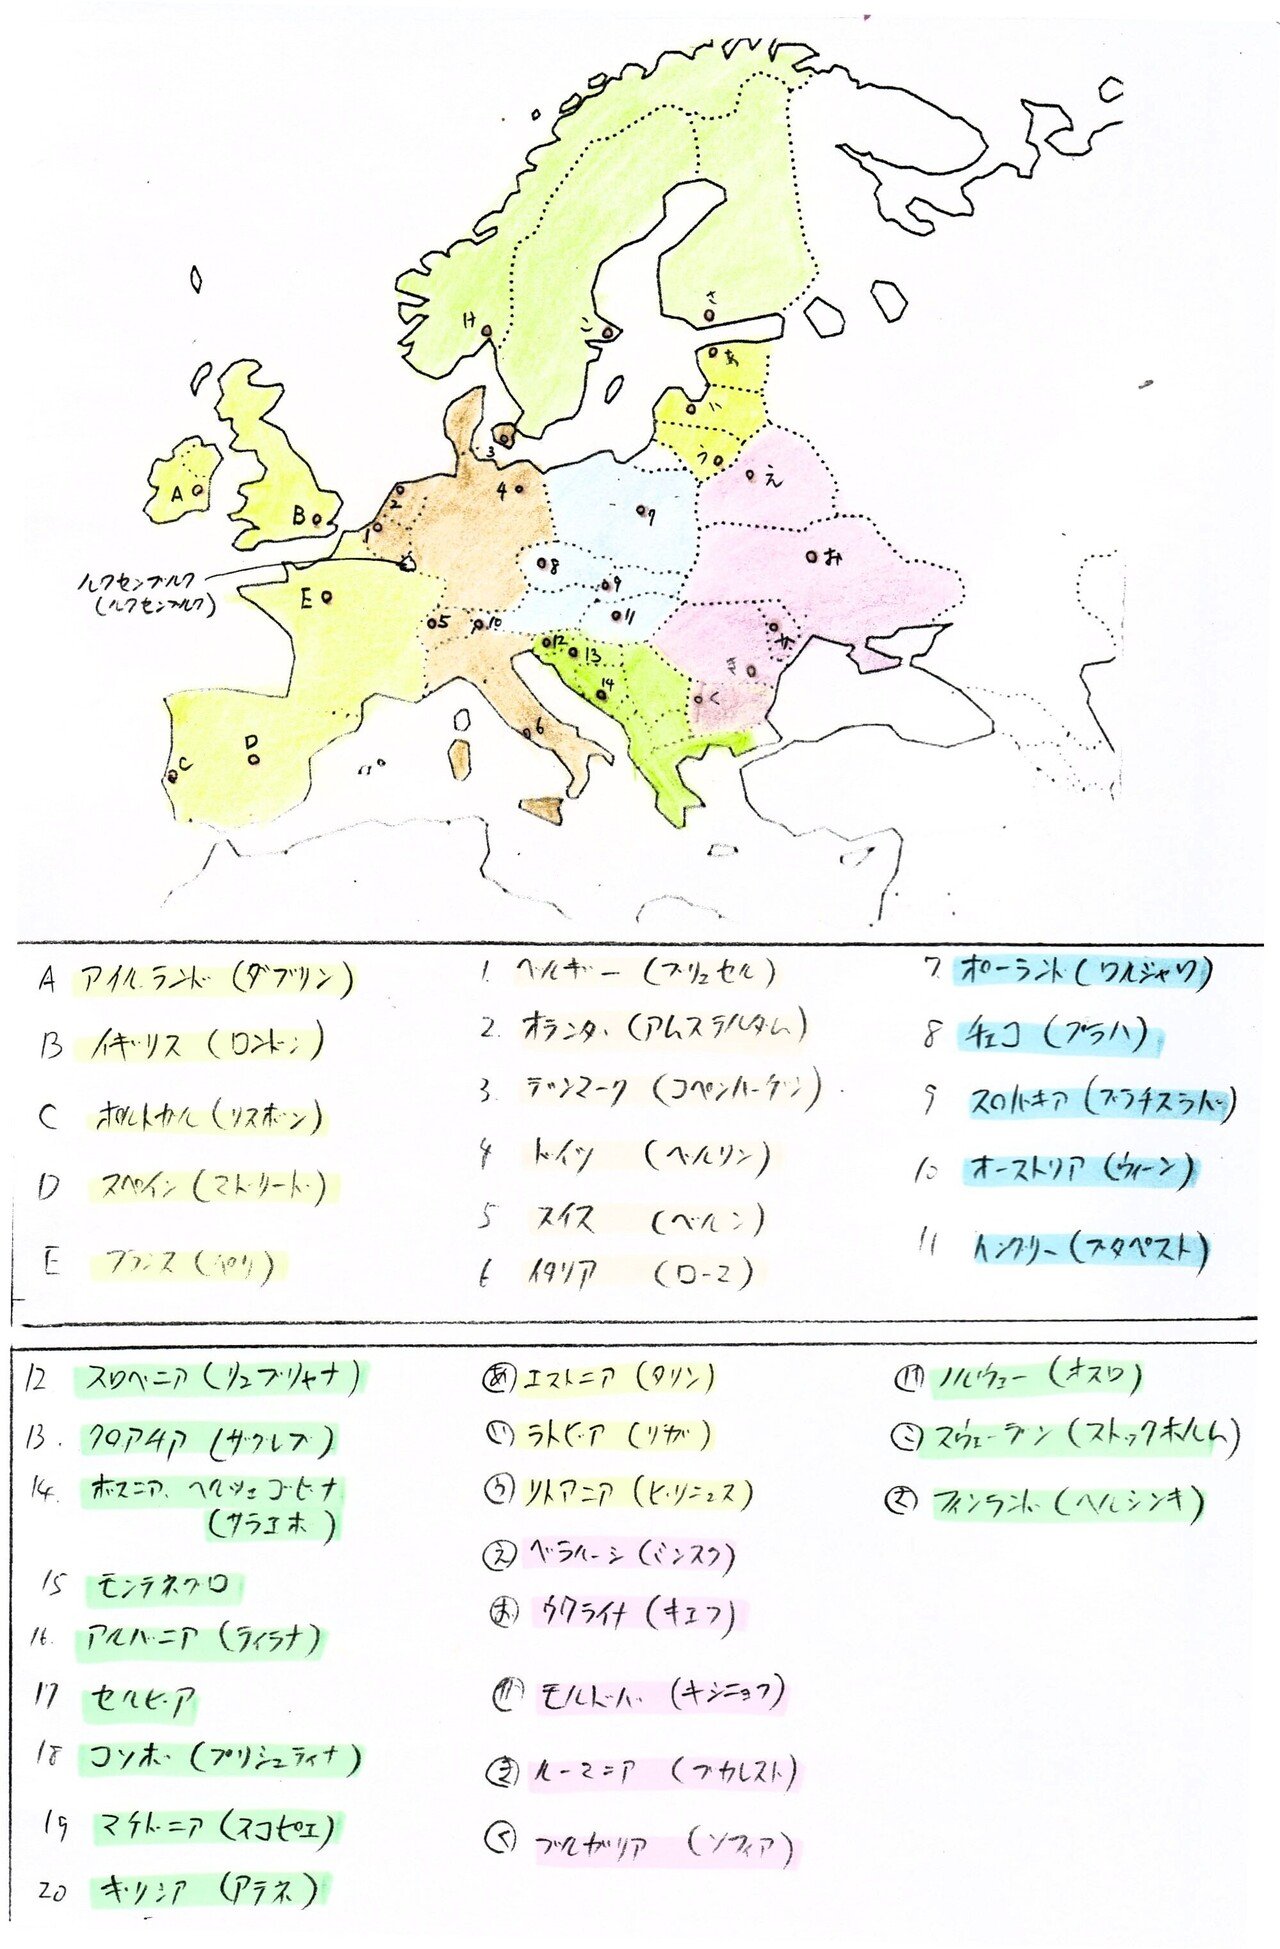 け
こ
さ
あ
い
う
え
お
か
き
く
A
B
C
D
E
1
2
3
4
5
6
7
8
9
10
11
12
13
14
ルクセンブルク
(ルクセンブルク)
A アイルランド (ダブリン)
B イギリス (ロンドン)
C ポルトガル (リスボン)
D スペイン (マドリード)
E フランス (パリ)
1. ベルギー (ブリュセル)
2. オランダ (アムステルダム)
3. デンマーク (コペンハーゲン)
4 ドイツ (ベルリン)
5 スイス (ベルン)
6 イタリア (ローマ)
7. ポーランド (ワルシャワ)
8 チェコ (プラハ)
9 スロバキア (ブラチスラバ)
10 オーストリア (ウィーン)
11 ハンガリー (ブタペスト)
12 スロベニア (リュブリャナ)
13. クロアチア (ザクレブ)
14. ボスニア、ヘルツェゴビナ
(サラエボ)
15 モンテネグロ
16. アルバニア (ティラナ)
17 セルビア
18 コソボ (プリシュティナ)
19 マケドニア (スコピエ)
20 ギリシア (アテネ)
あ エストニア (タリン)
い ラトビア (リガ)
う リトアニア (ビリニュス)
え ベラルーシ (ミンスク)
お ウクライナ (キエフ)
か モルドバ (キシニョフ)
き ルーマニア (ブカレスト)
く ブルガリア (ソフィア)
け ノルウェー (オスロ)
こ スウェーデン (ストックホルム)
さ フィンランド (ヘルシンキ)